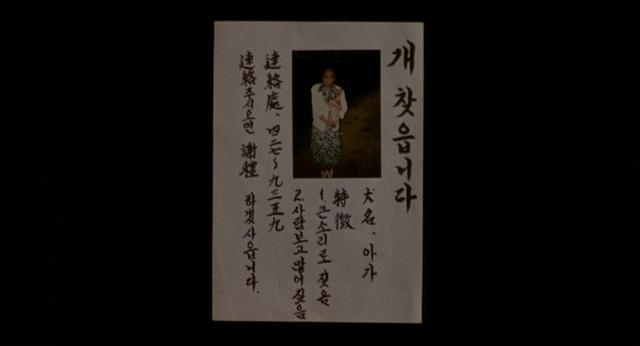 개 찾읍니다
犬名、아가
特徵
1. 큰소리로 짖음
2. 사람보고 많이 짖음
連絡處、四二七~九三五九
連絡주시오면 謝禮 하겟사읍니다.